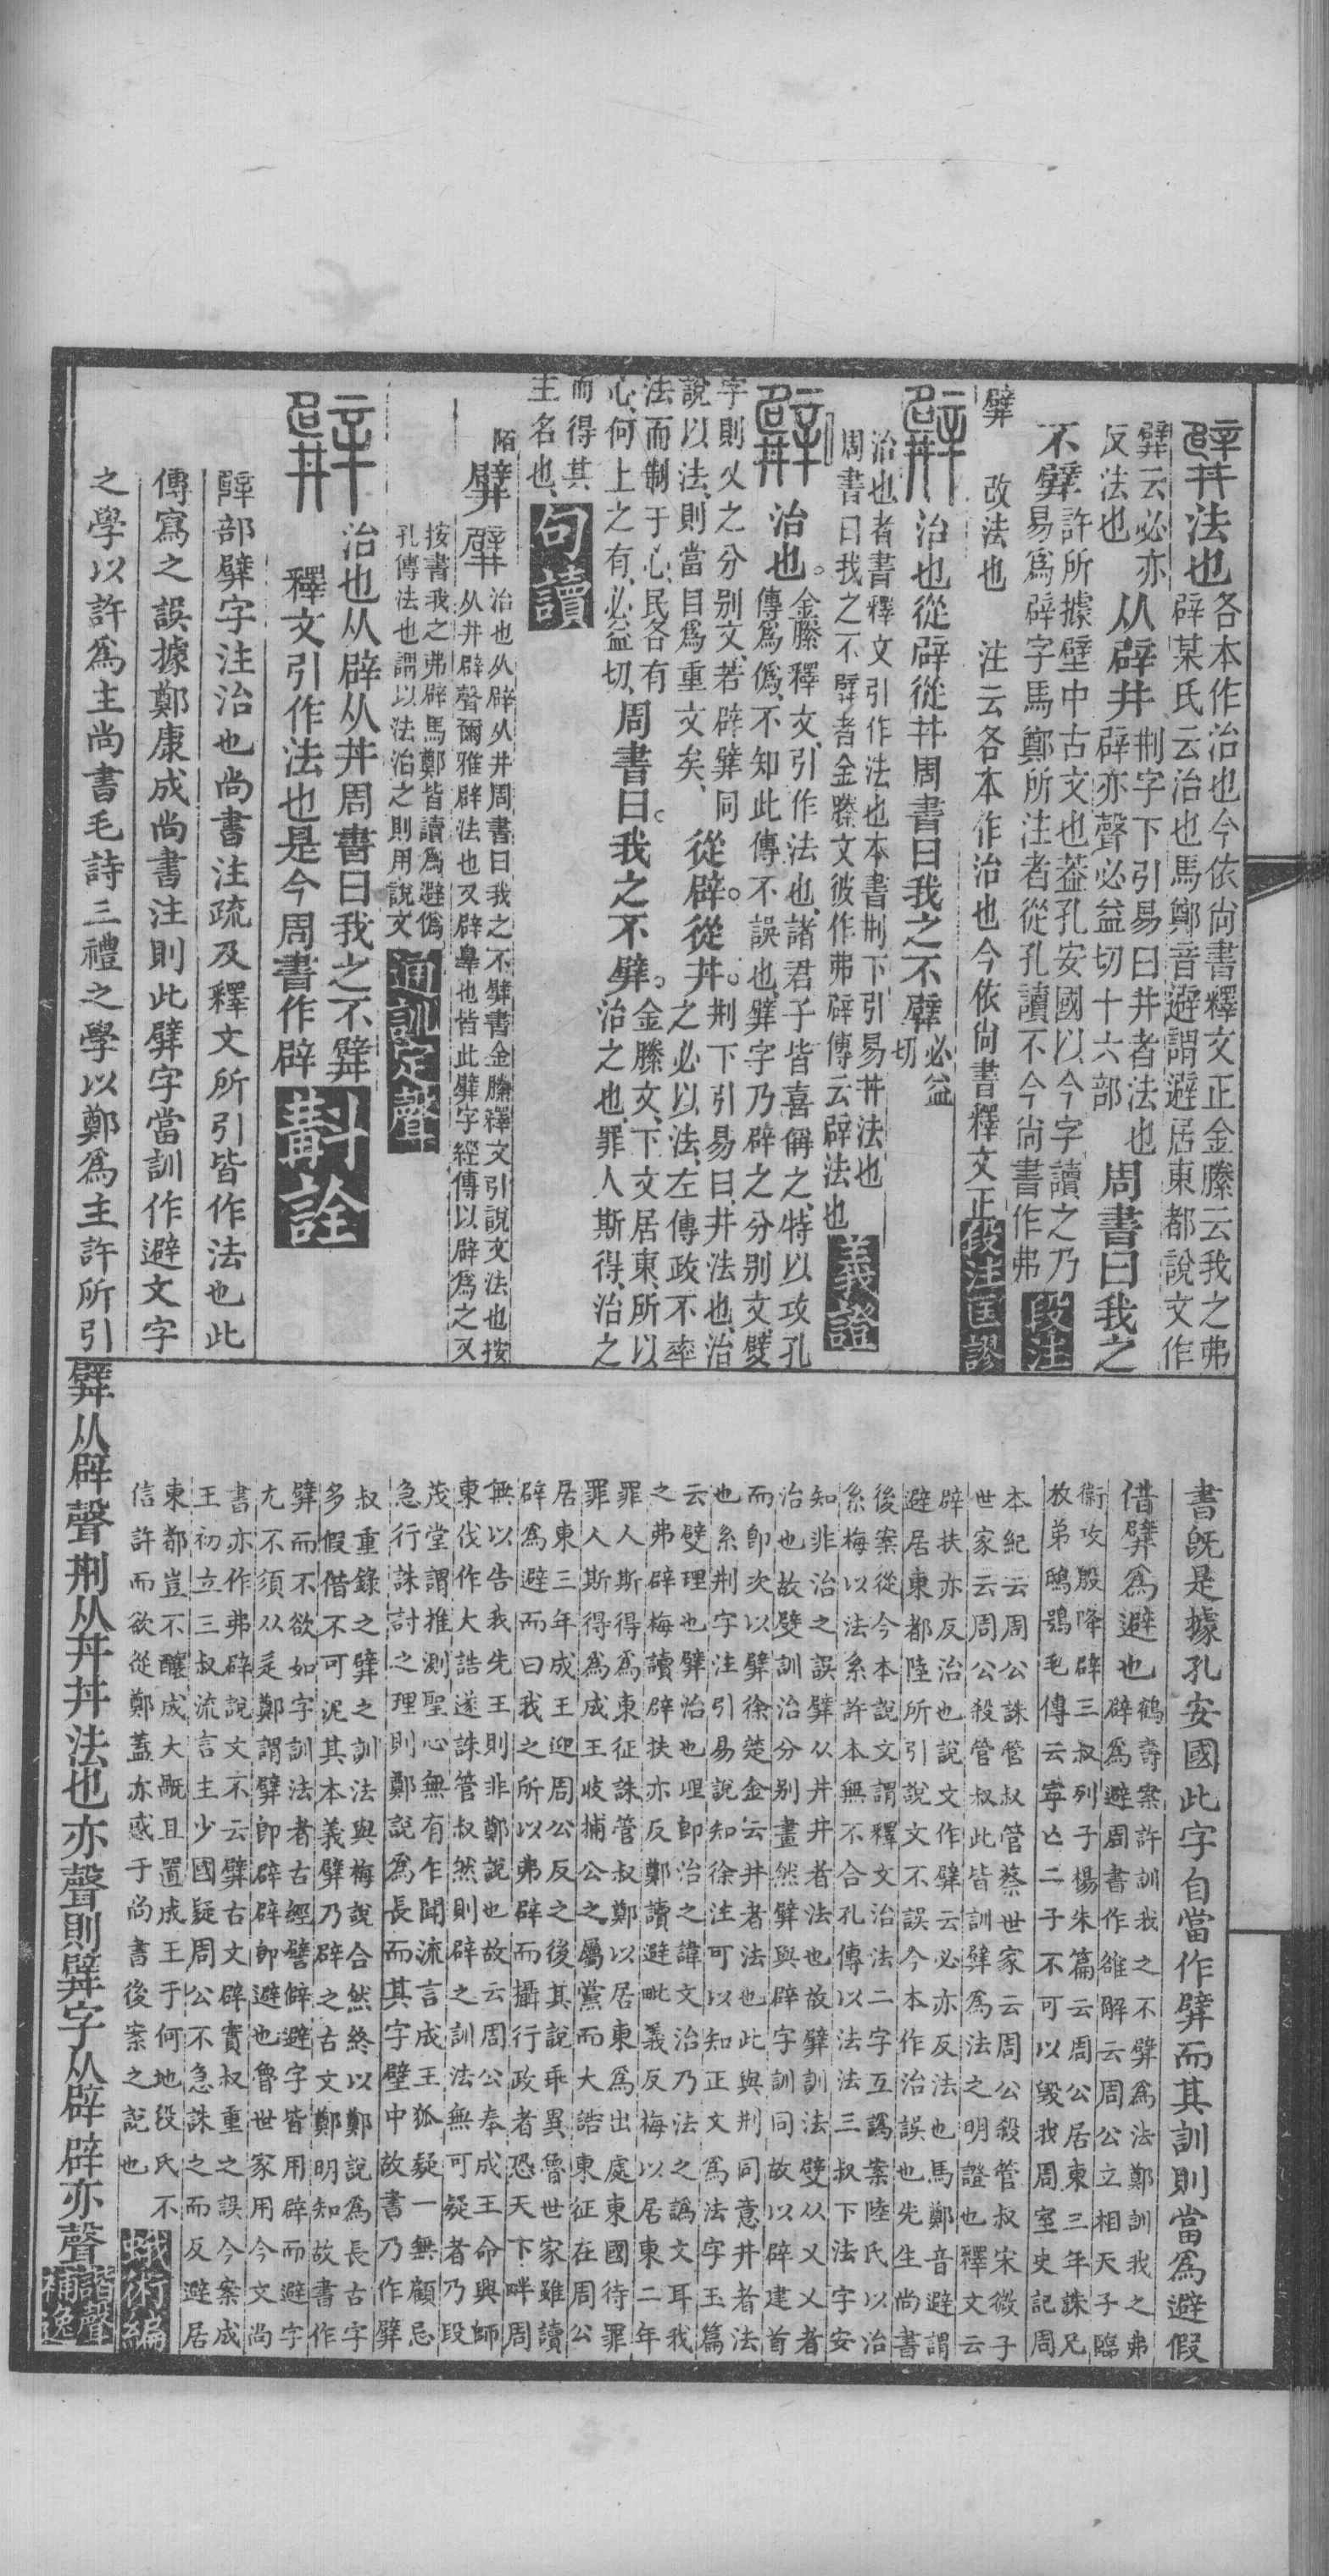 法也各本作治也今依尚書釋文正金縢云我之弗
辟某氏云治也馬鄭音避謂避居東都說文作
𨐨云必亦
反法也
从辟井荆字下引易曰井者法也
辟亦聲必益切十六部
周書曰我之
不𨐨許所據壁中古文也葢孔安國以今字讀之乃
易爲辟字馬鄭所注者從孔讀不今尚書作弗
段注
𨐨 改法也 注云各本作治也今依尚書釋文正
段注匡謬
治也從辟從井周書曰我之不𨐨必益切
治也者書釋文引作法也本書荆下引易井法也
周書曰我之不𨐨者金縢文彼作弗辟傳云辟法也
義證
治也金縢釋文引作法也諸君子皆喜偁之特以攻孔
傳爲僞不知此傳不誤也𨐨字乃辟之分别文嬖
字則乂之分别文若辟𨐨同
說以法則當目爲重文矣
從辟從井荆下引易曰井法也治
之必以法左傳政不率
法而制于心民各有
心何上之有必益切
周書曰我之不𨐨金縢文下文居東所以
治之也罪人斯得治之
而得其
主名也
句讀
陌𨐨
治也从辟从井周書曰我之不𨐨書金縢釋文引說文法也按
从井辟聲爾雅辟法也又辟辠也皆此𨐨字經傳以辟爲之又
按書我之弗辟馬鄭皆讀爲避僞
孔傳法也謂以法治之則用說文
通訓定聲
治也从辟从井周書曰我之不𨐨
釋文引作法也是今周書作辟
斠詮
辟部𨐨字注治也尚書注疏及釋文所引皆作法也此
傳寫之誤據鄭康成尚書注則此𨐨字當訓作避文字
之學以許爲主尚書毛詩三禮之學以鄭爲主許所引
書旣是據孔安國此字自當作𨐨而其訓則當爲避假
借𨐨爲避也鶴壽案許訓我之不𨐨爲法鄭訓我之弗
辟爲避周書作雒解云周公立相天子臨
衞攻殷降辟三叔列子楊朱篇云周公居東三年誅兄
放弟鴟鴞毛傳云寧亡二子不可以毀我周室史記周
本紀云周公誅管叔管蔡世家云周公殺管叔宋微子
世家云周公殺管叔此皆訓𨐨爲法之明證也釋文云
辟扶亦反治也說文作𨐨云必亦反法也馬鄭音避謂
避居東都陸所引說文不誤今本作治誤也先生尚書
後案從今本說文謂釋文治法二字互譌案陸氏以治
系梅以法系許本無不合孔傳以法法三叔下法字安
知非治之誤𨐨从井井者法也故𨐨訓法嬖从乂乂者
治也故嬖訓治分别畫然𨐨與辟字訓同故以辟建首
而卽次以𨐨徐楚金云井者法也此與荆同意井者法
也系荆字注引易說知徐注可以知正文爲法字玉篇
云嬖理也𨐨治也理卽治之諱文治乃法之譌文耳我
之弗辟梅讀辟扶亦反鄭讀避毗義反梅以居東二年
罪人斯得爲東征誅管叔鄭以居東爲出處東國待罪
罪人斯得爲成王收捕公之屬黨而大誥東征在周公
居東三年成王迎周公反之後其說乖異魯世家雖讀
辟爲避而曰我之所以弗辟而攝行政者恐天下畔周
無以告我先王則非鄭說也故云周公奉成王命興師
東伐作大誥遂誅管叔然則辟之訓法無可疑者乃段
茂堂謂推測聖心無有乍聞流言成王狐疑一無顧忌
急行誅討之理則鄭說爲長而其字壁中故書乃作𨐨
叔重錄之𨐨之訓法與梅說合然終以鄭說爲長古字
多假借不可泥其本義𨐨乃辟之古文鄭明知故書作
𨐨而不欲如字訓法者古經譬僻避字皆用辟而避字
尢不須从辵鄭謂𨐨卽辟辟卽避也魯世家用今文尚
書亦作弗辟說文不云𨐨古文辟實叔重之誤今案成
王初立三叔流言主少國疑周公不急誅之而反避居
東都豈不釀成大亂且置成王于何地段氏不
信許而欲從鄭葢亦惑于尚書後案之說也
蛾術編
𨐨从辟聲荆从井井法也亦聲則𨐨字从辟辟亦聲
諧聲補逸